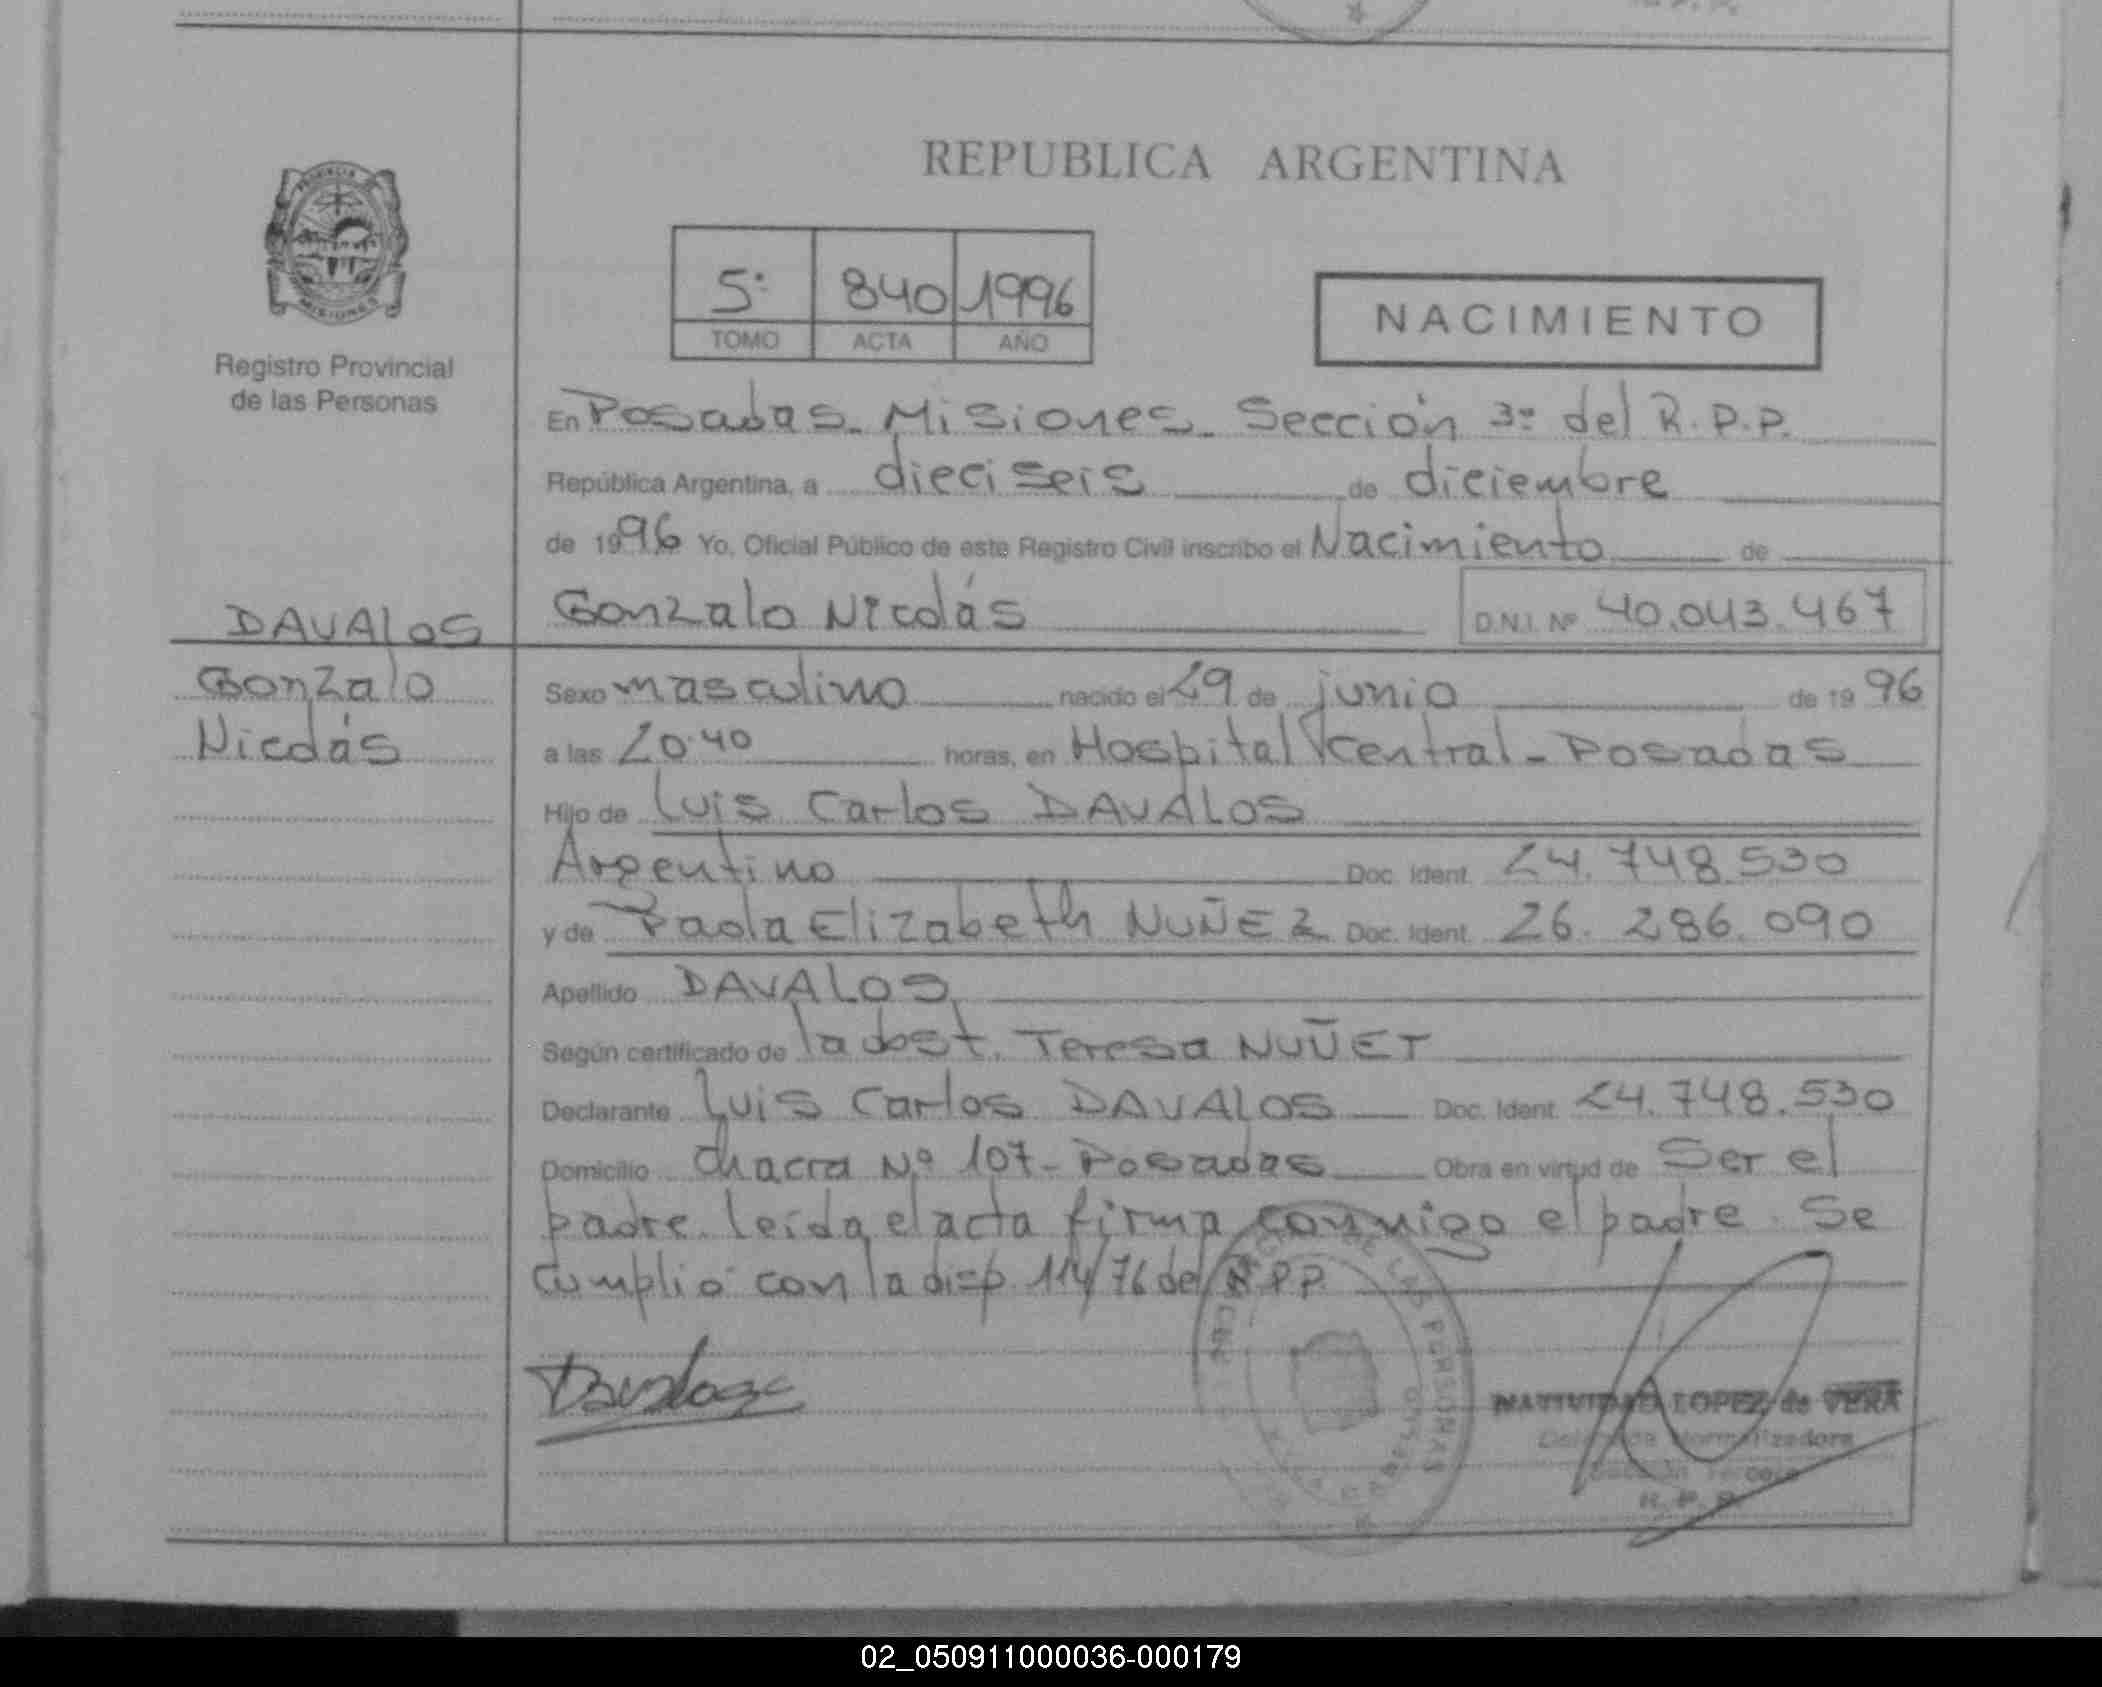 REPUBLICA ARGENTINA
5º 840 1996
TOMO ACTA AÑO
NACIMIENTO
Registro Provincial
de las Personas
En Posadas. Misiones. Sección 3º del R.P.P.
República Argentina, a dieciseis de diciembre
de 1996 Yo, Oficial Público de este Registro Civil inscribo el Nacimiento de
DAVALOS
Gonzalo
Nicolás
Gonzalo Nicolás D.N.I. Nº 40.043.467
Sexo masculino nacido el 29 de junio de 19 96
a las 20.40 horas, en Hospital Central - Posadas
Hijo de Luis Carlos DAVALOS
Argentino Doc. Ident. 24.748.530
y de Paola Elizabeth NUÑEZ Doc. Ident. 26.286.090
Apellido DAVALOS
Según certificado de la obst. Teresa NUÑET
Declarante Luis Carlos DAVALOS Doc. Ident. 24.748.530
Domicilio Chacra Nº 107 - Posadas Obra en virtud de Ser el
padre. leída el acta firma conmigo el padre. Se
cumplió con la disp. 114/76 del R.P.P.
Davalos
NATIVIDAD LOPEZ de VERA
Delegada Normalizadora
Sección Tercera
R. P. P.
DE LAS PERSONAS
02_050911000036-000179